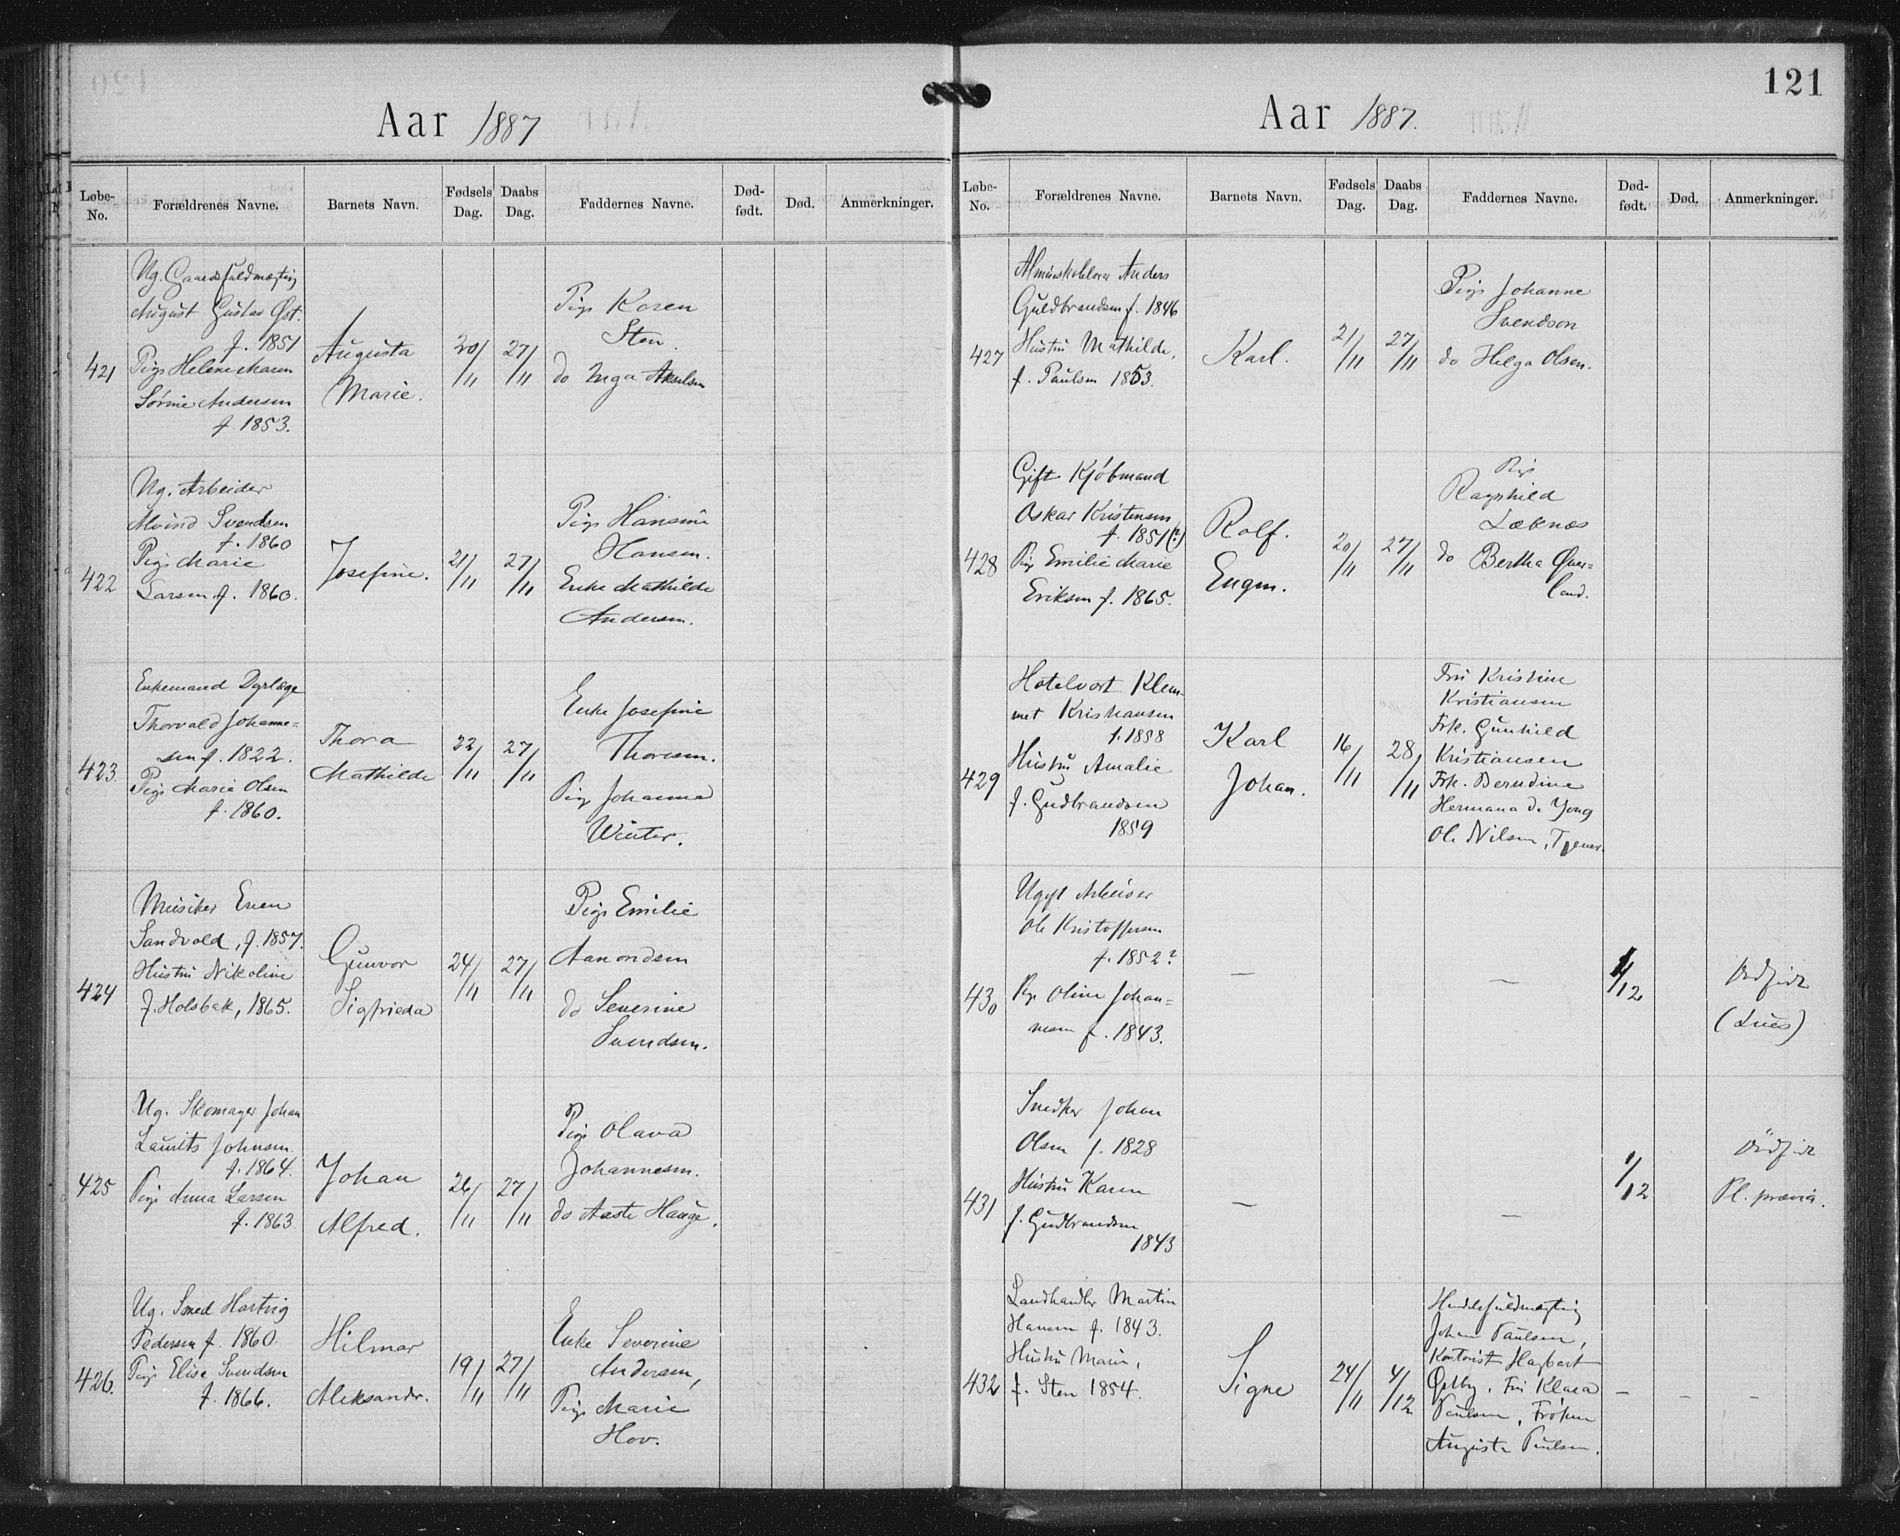 Aar 1887
Løbe-No. Forældrenes Navne. Barnets Navn. Fødsels Dag. Daabs Dag. Faddernes Navne. Død-født. Død. Anmerkninger.
421
Ug. Gaardsfuldmægtig
August Gustav Øst.
f. 1851
Pige Helene Maren
Sørine Andersen
f. 1853.
Augusta
Marie.
20/11
27/11
Pige Karen
Sten.
do Inga Akselsen
422
Ug. Arbeider
Svendsen
f. 1860
Pige Marie
Larsen f. 1860.
Josefine.
21/11
27/11
Pige Hansine
Hansen.
Enke Mathilde
Andersen.
423
Enkemand Dyrlæge
Thorvald Johanne=
sen f. 1822.
Pige Marie Olsen
f. 1860.
Thora
Mathilde
22/11
27/11
Enke Josefine
Thoresen.
Pige Johanne
Winter.
424
Musiker Even
Sandvold, f. 1857.
Hustru Nikoline
f. Holsbak, 1865.
Gunvor
Sigfrieda
24/11
27/11
Pige Emilie
Aanondsen
do Severine
Svendsen.
425
Ug. Skomager Johan
Laurits Johnsen.
f. 1864.
Pige Anna Larsen
f. 1863
Johan
Alfred.
26/11
27/11
Pige Olava
Johannesen.
do Aaste Hauge.
426.
Ug. Smed Hartvig
Pedersen f. 1860.
Pige Elise Svendsen
f. 1866.
Hilmar
Aleksander.
19/11
27/11
Enke Severine
Andersen,
Pige Marie
Hov.
121
Aar 1887.
Løbe-No. Forældrenes Navne. Barnets Navn. Fødsels Dag. Daabs Dag. Faddernes Navne. Død-født. Død. Anmerkninger.
427
Anders
Guldbrandsen f. 1846
Hustru Mathilde,
f. Paulsen 1853.
Karl.
21/11
27/11
Pige Johanne
Svendson
do Helga Olsen.
428
Gift Kjøbmand
Oskar Kristensen
f. 1851 (?)
Pige Emilie Marie
Eriksen f. 1865.
Rolf.
Eugen.
20/11
27/11
Pige
Ragnhild
Læknæs
do Bertha Øver=
land.
429
Hotelvært Klem-
met Kristiansen
f. 1858
Hustru Amalie
f. Gudbrandsen
1859
Karl
Johan.
16/11
28/11
Fru Kristine
Kristiansen
Frk. Gunhild
Kristiansen
Frk. Berndine
Hermana de Jong
Ole Nilsen, Tjener.
430
Ugift Arbeider
Ole Kristoffersen
f. 1852?
Pige Oline Johan=
nesen f. 1843.
—
—
1/12
Dødfødt
(Lues)
431
Snedker Johan
Olsen f. 1828
Hustru Karen
f. Gudbrandsen
1843
—
—
1/12
Dødfødt
Pl. prævia.
432
Landhandler Martin
Hansen f. 1843.
Hustru Marie,
f. Sten 1854.
Signe
24/11
4/12
Handelsfuldmægtig
Johan Paulsen,
Kontorist Hagbart
Østby, Fru Klara
Paulsen, Frøken
Augusta Paulsen.
—
—
—